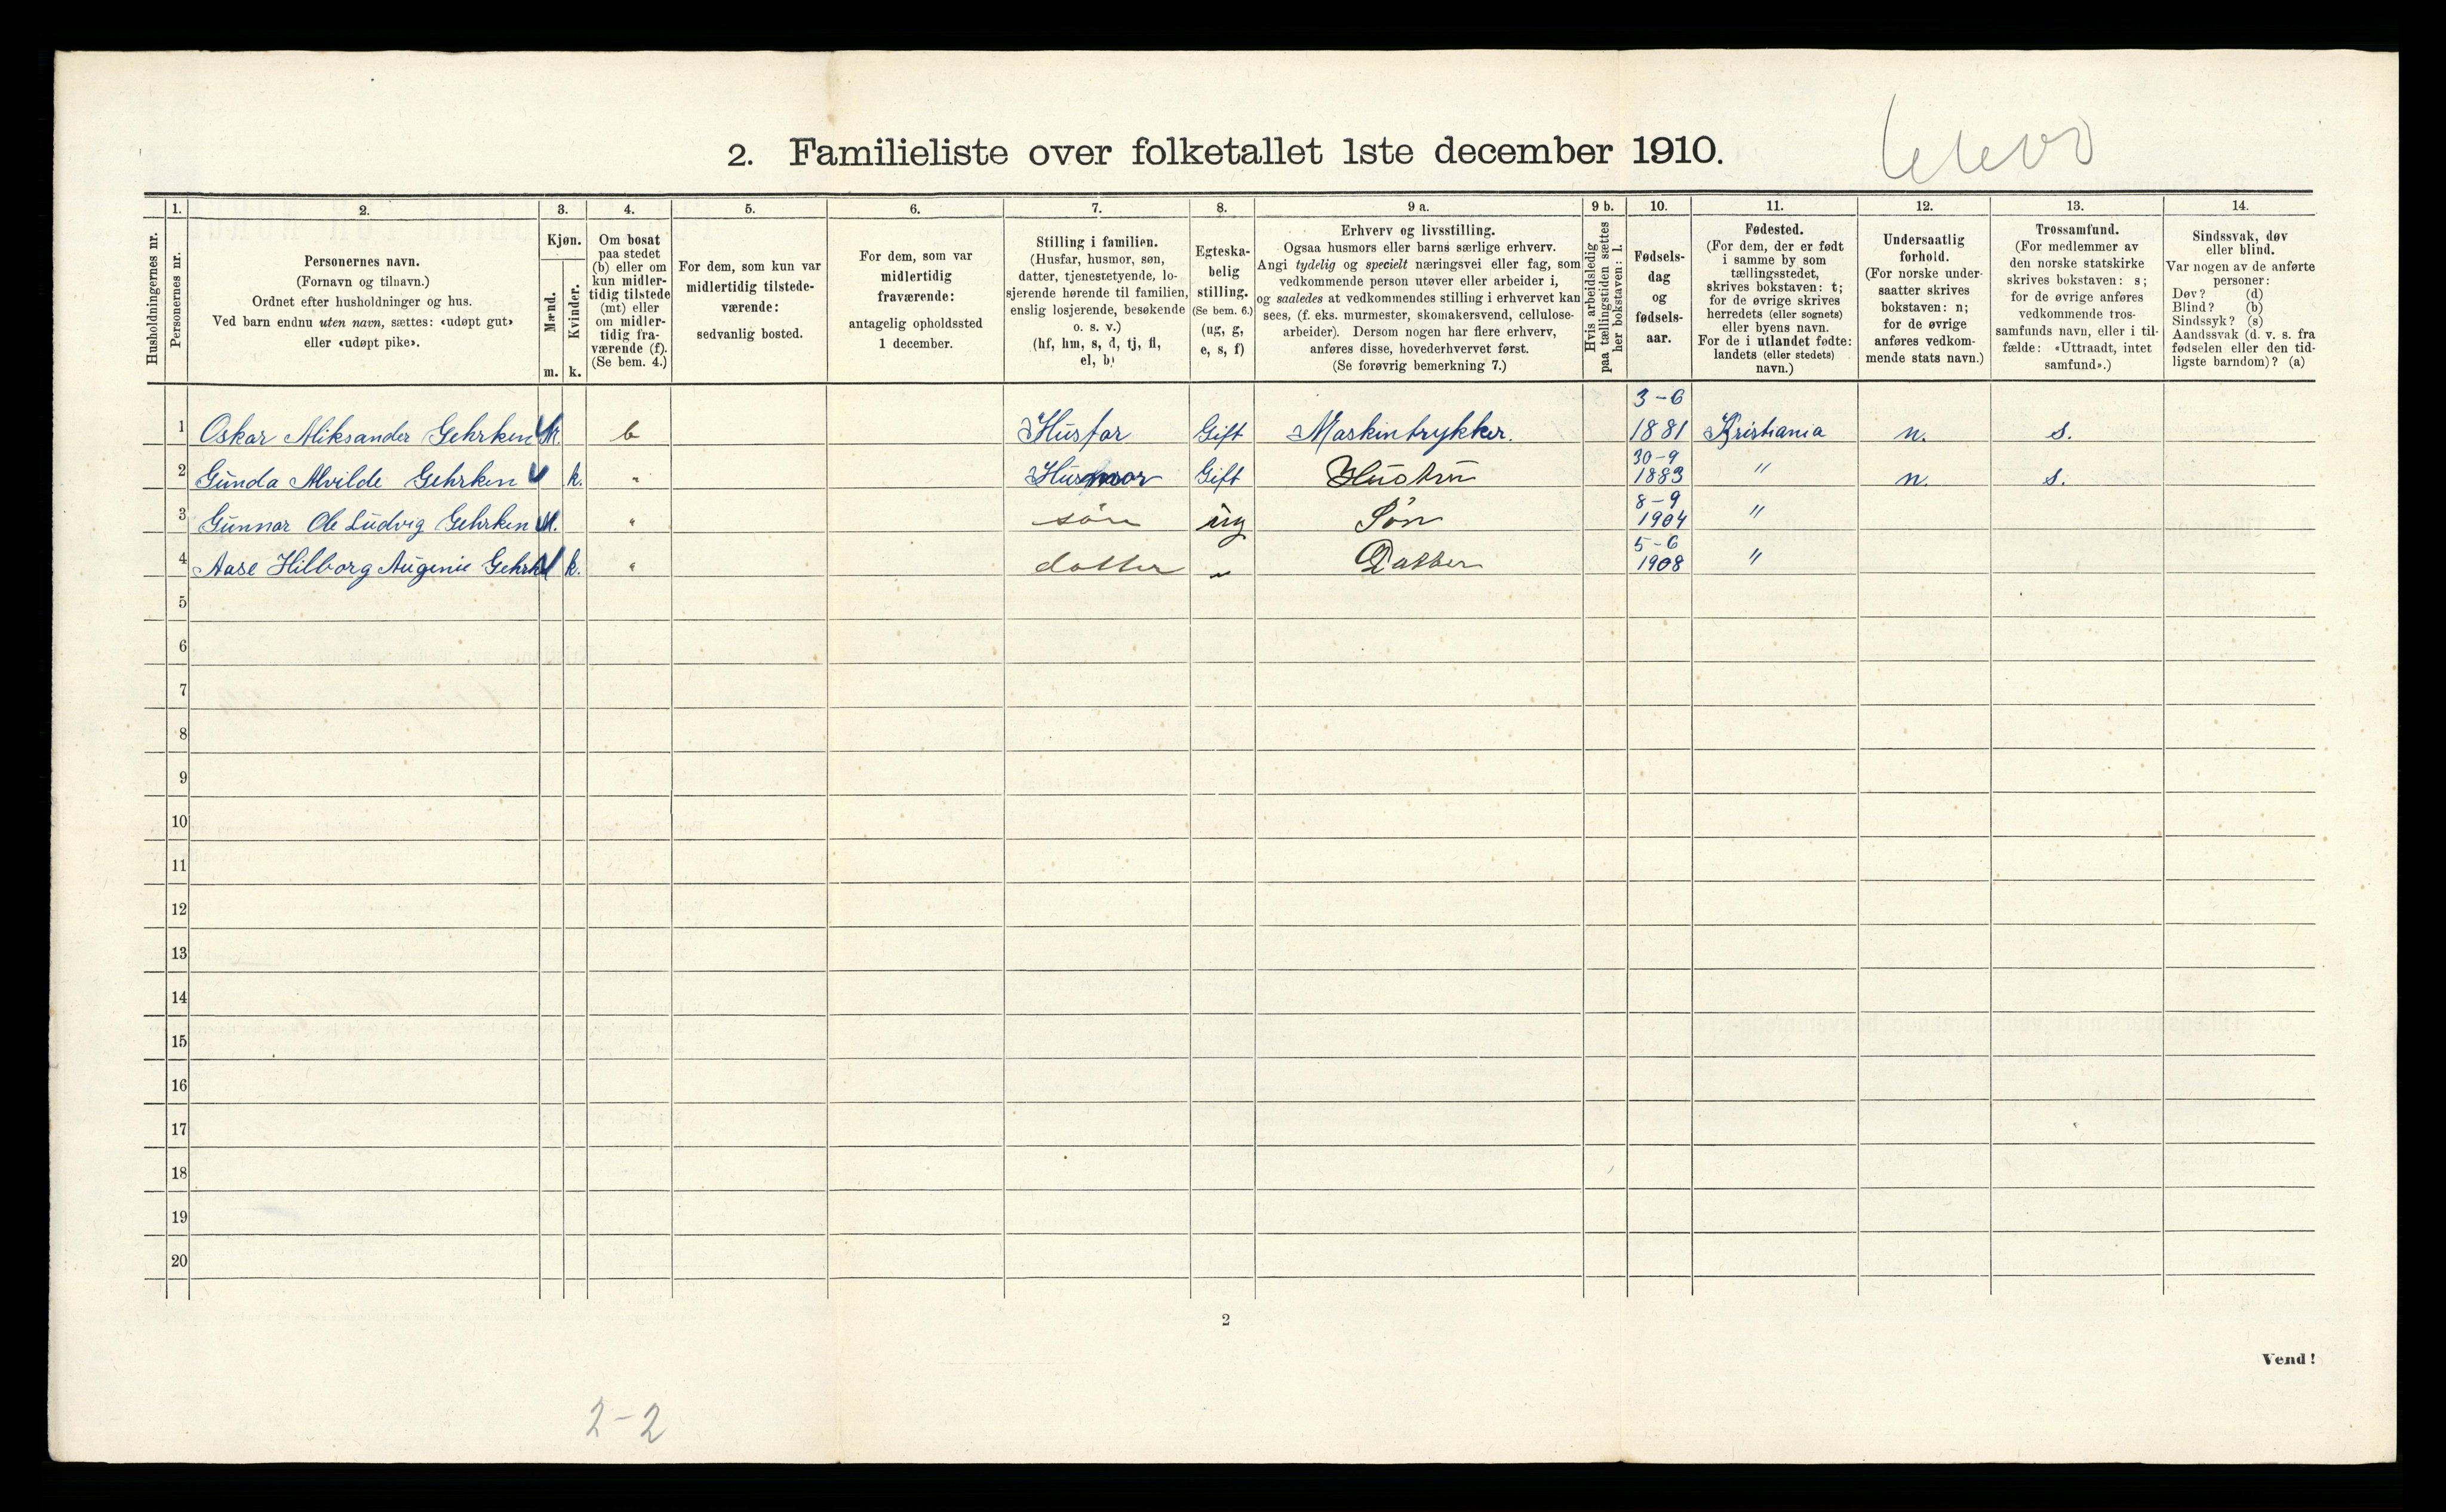 2. Familieliste over folketallet 1ste december 1910.
Husholdningernes nr.
1.
Personernes nr.
2.
Personernes navn.
(Fornavn og tilnavn.)
Ordnet efter husholdninger og hus.
Ved barn endnu uten navn, sættes: «udøpt gut»
eller «udøpt pike».
3.
Kjøn.
Mænd.
Kvinder.
m.
k.
4.
Om bosat
paa stedet
(b) eller om
kun midler-
tidig tilstede
(mt) eller
om midler-
tidig fra-
værende (f).
(Se bem. 4.)
5.
For dem, som kun var
midlertidig tilstede-
værende:
sedvanlig bosted.
6.
For dem, som var
midlertidig
fraværende:
antagelig opholdssted
1 december.
7.
Stilling i familien.
(Husfar, husmor, søn,
datter, tjenestetyende, lo-
sjerende hørende til familien,
enslig losjerende, besøkende
o. s. v.)
(hf, hm, s, d, tj, fl,
el, b)
8.
Egteska-
belig
stilling.
(Se bem. 6.)
(ug, g,
e, s, f)
9 a.
Erhverv og livsstilling.
Ogsaa husmors eller barns særlige erhverv.
Angi tydelig og specielt næringsvei eller fag, som
vedkommende person utøver eller arbeider i,
og saaledes at vedkommendes stilling i erhvervet kan
sees, (f. eks. murmester, skomakersvend, cellulose-
arbeider). Dersom nogen har flere erhverv,
anføres disse, hovederhvervet først.
(Se forøvrig bemerkning 7.)
9 b.
Hvis arbeidsledig
paa tællingstiden sættes
her bokstaven: l.
10.
Fødsels-
dag
og
fødsels-
aar.
11.
Fødested.
(For dem, der er født
i samme by som
tællingsstedet,
skrives bokstaven: t;
for de øvrige skrives
herredets (eller sognets)
eller byens navn.
For de i utlandet fødte:
landets (eller stedets)
navn.)
12.
Undersaatlig
forhold.
(For norske under-
saatter skrives
bokstaven: n;
for de øvrige
anføres vedkom-
mende stats navn.)
13.
Trossamfund.
(For medlemmer av
den norske statskirke
skrives bokstaven: s;
for de øvrige anføres
vedkommende tros-
samfunds navn, eller i til-
fælde: «Uttraadt, intet
samfund».)
14.
Sindssvak, døv
eller blind.
Var nogen av de anførte
personer:
Døv? (d)
Blind? (b)
Sindssyk? (s)
Aandssvak (d. v. s. fra
fødselen eller den tid-
ligste barndom)? (a)
1 Oskar Aliksander Gehrken M. b Husfar Gift Maskintrykker. 3-6 1881 Kristiania n. s.
2 Gunda Alvilde Gehrken k. " Husmor Gift Hustru 30-9 1883 " n. s.
3 Gunnar Ole Ludvig Gehrken M. " søn ug Søn 8-9 1904 "
4 Aase Hilborg Augenie Gehrk k. " datter " Datter 5-6 1908 "
5
6
7
8
9
10
11
12
13
14
15
16
17
18
19
20
2
Vend!
2-2